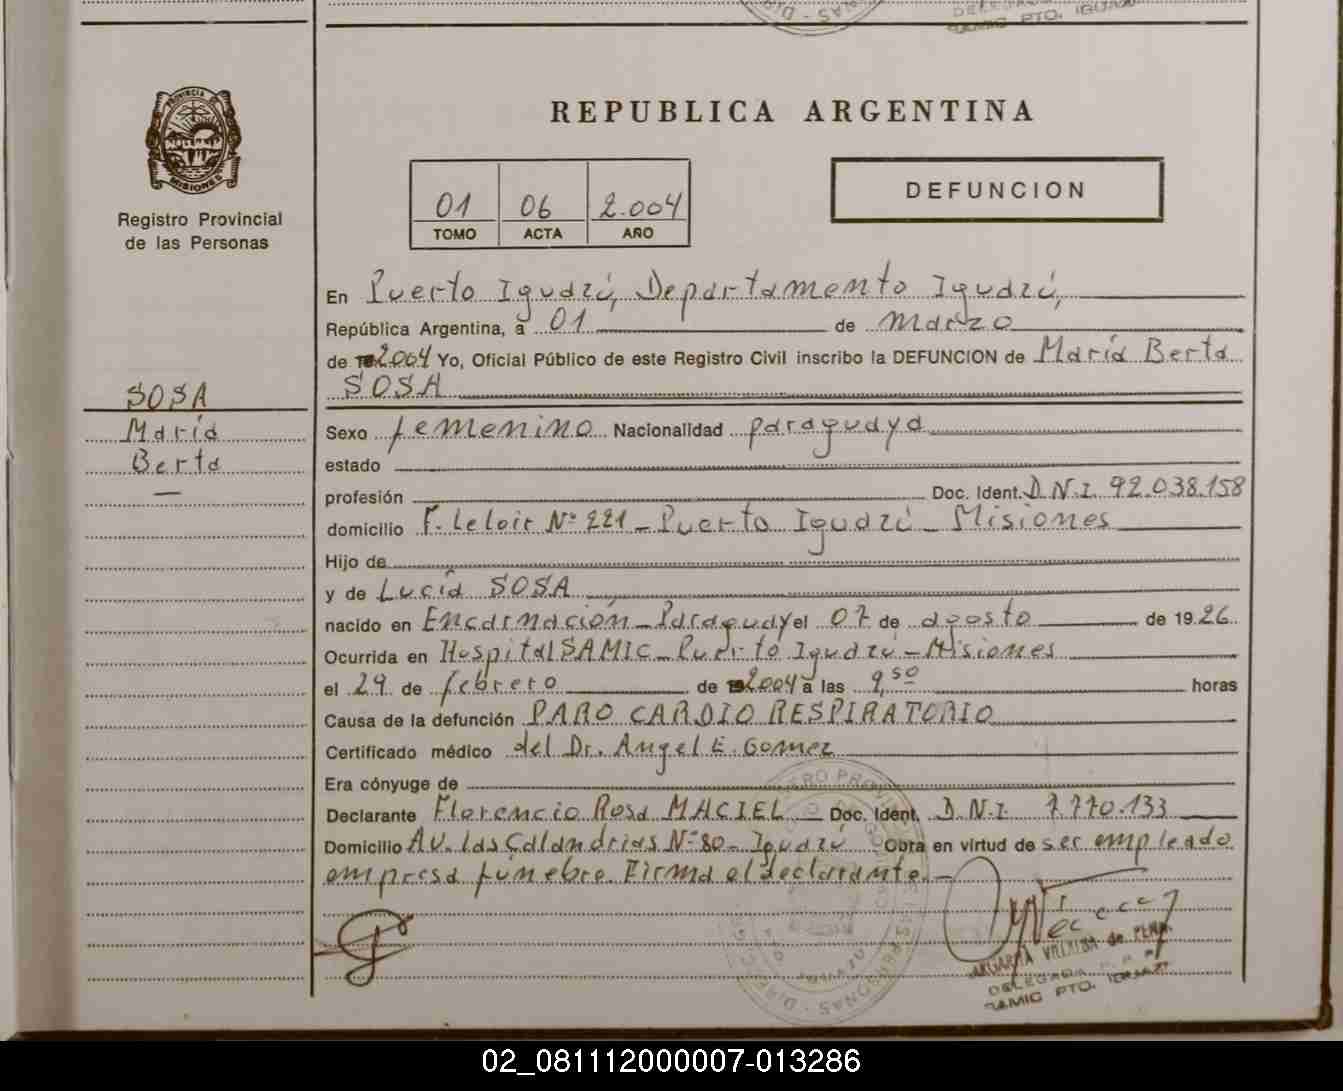 DELEGADA
SAMIC PTO. IGUAZU
PROVINCIA DE
MISIONES
Registro Provincial
de las Personas
REPUBLICA ARGENTINA
01 06 2.004
TOMO ACTA AÑO
DEFUNCION
En Puerto Iguazú, Departamento Iguazú,
República Argentina, a 01 de marzo
de 2004 Yo, Oficial Público de este Registro Civil inscribo la DEFUNCION de María Berta
SOSA
SOSA
María
Berta
—
Sexo femenino Nacionalidad paraguaya
estado
profesión Doc. Ident. D.N.I. 92.038.158
domicilio F. Leloir Nº 221 - Puerto Iguazú - Misiones
Hijo de
y de Lucía SOSA
nacido en Encarnación - Paraguay el 07 de agosto de 1926
Ocurrida en Hospital SAMIC - Puerto Iguazú - Misiones
el 29 de febrero de 2004 a las 9,50 horas
Causa de la defunción PARO CARDIO RESPIRATORIO
Certificado médico del Dr. Angel E. Gomez
Era cónyuge de
Declarante Florencio Rosa MACIEL Doc. Ident. D.N.I. 7.770.133
Domicilio Av. Las Calandrias Nº 80 - Iguazú Obra en virtud de ser empleado
empresa fúnebre. Firma el declarante.-
DELEGADA
SAMIC PTO. IGUAZU
02_081112000007-013286